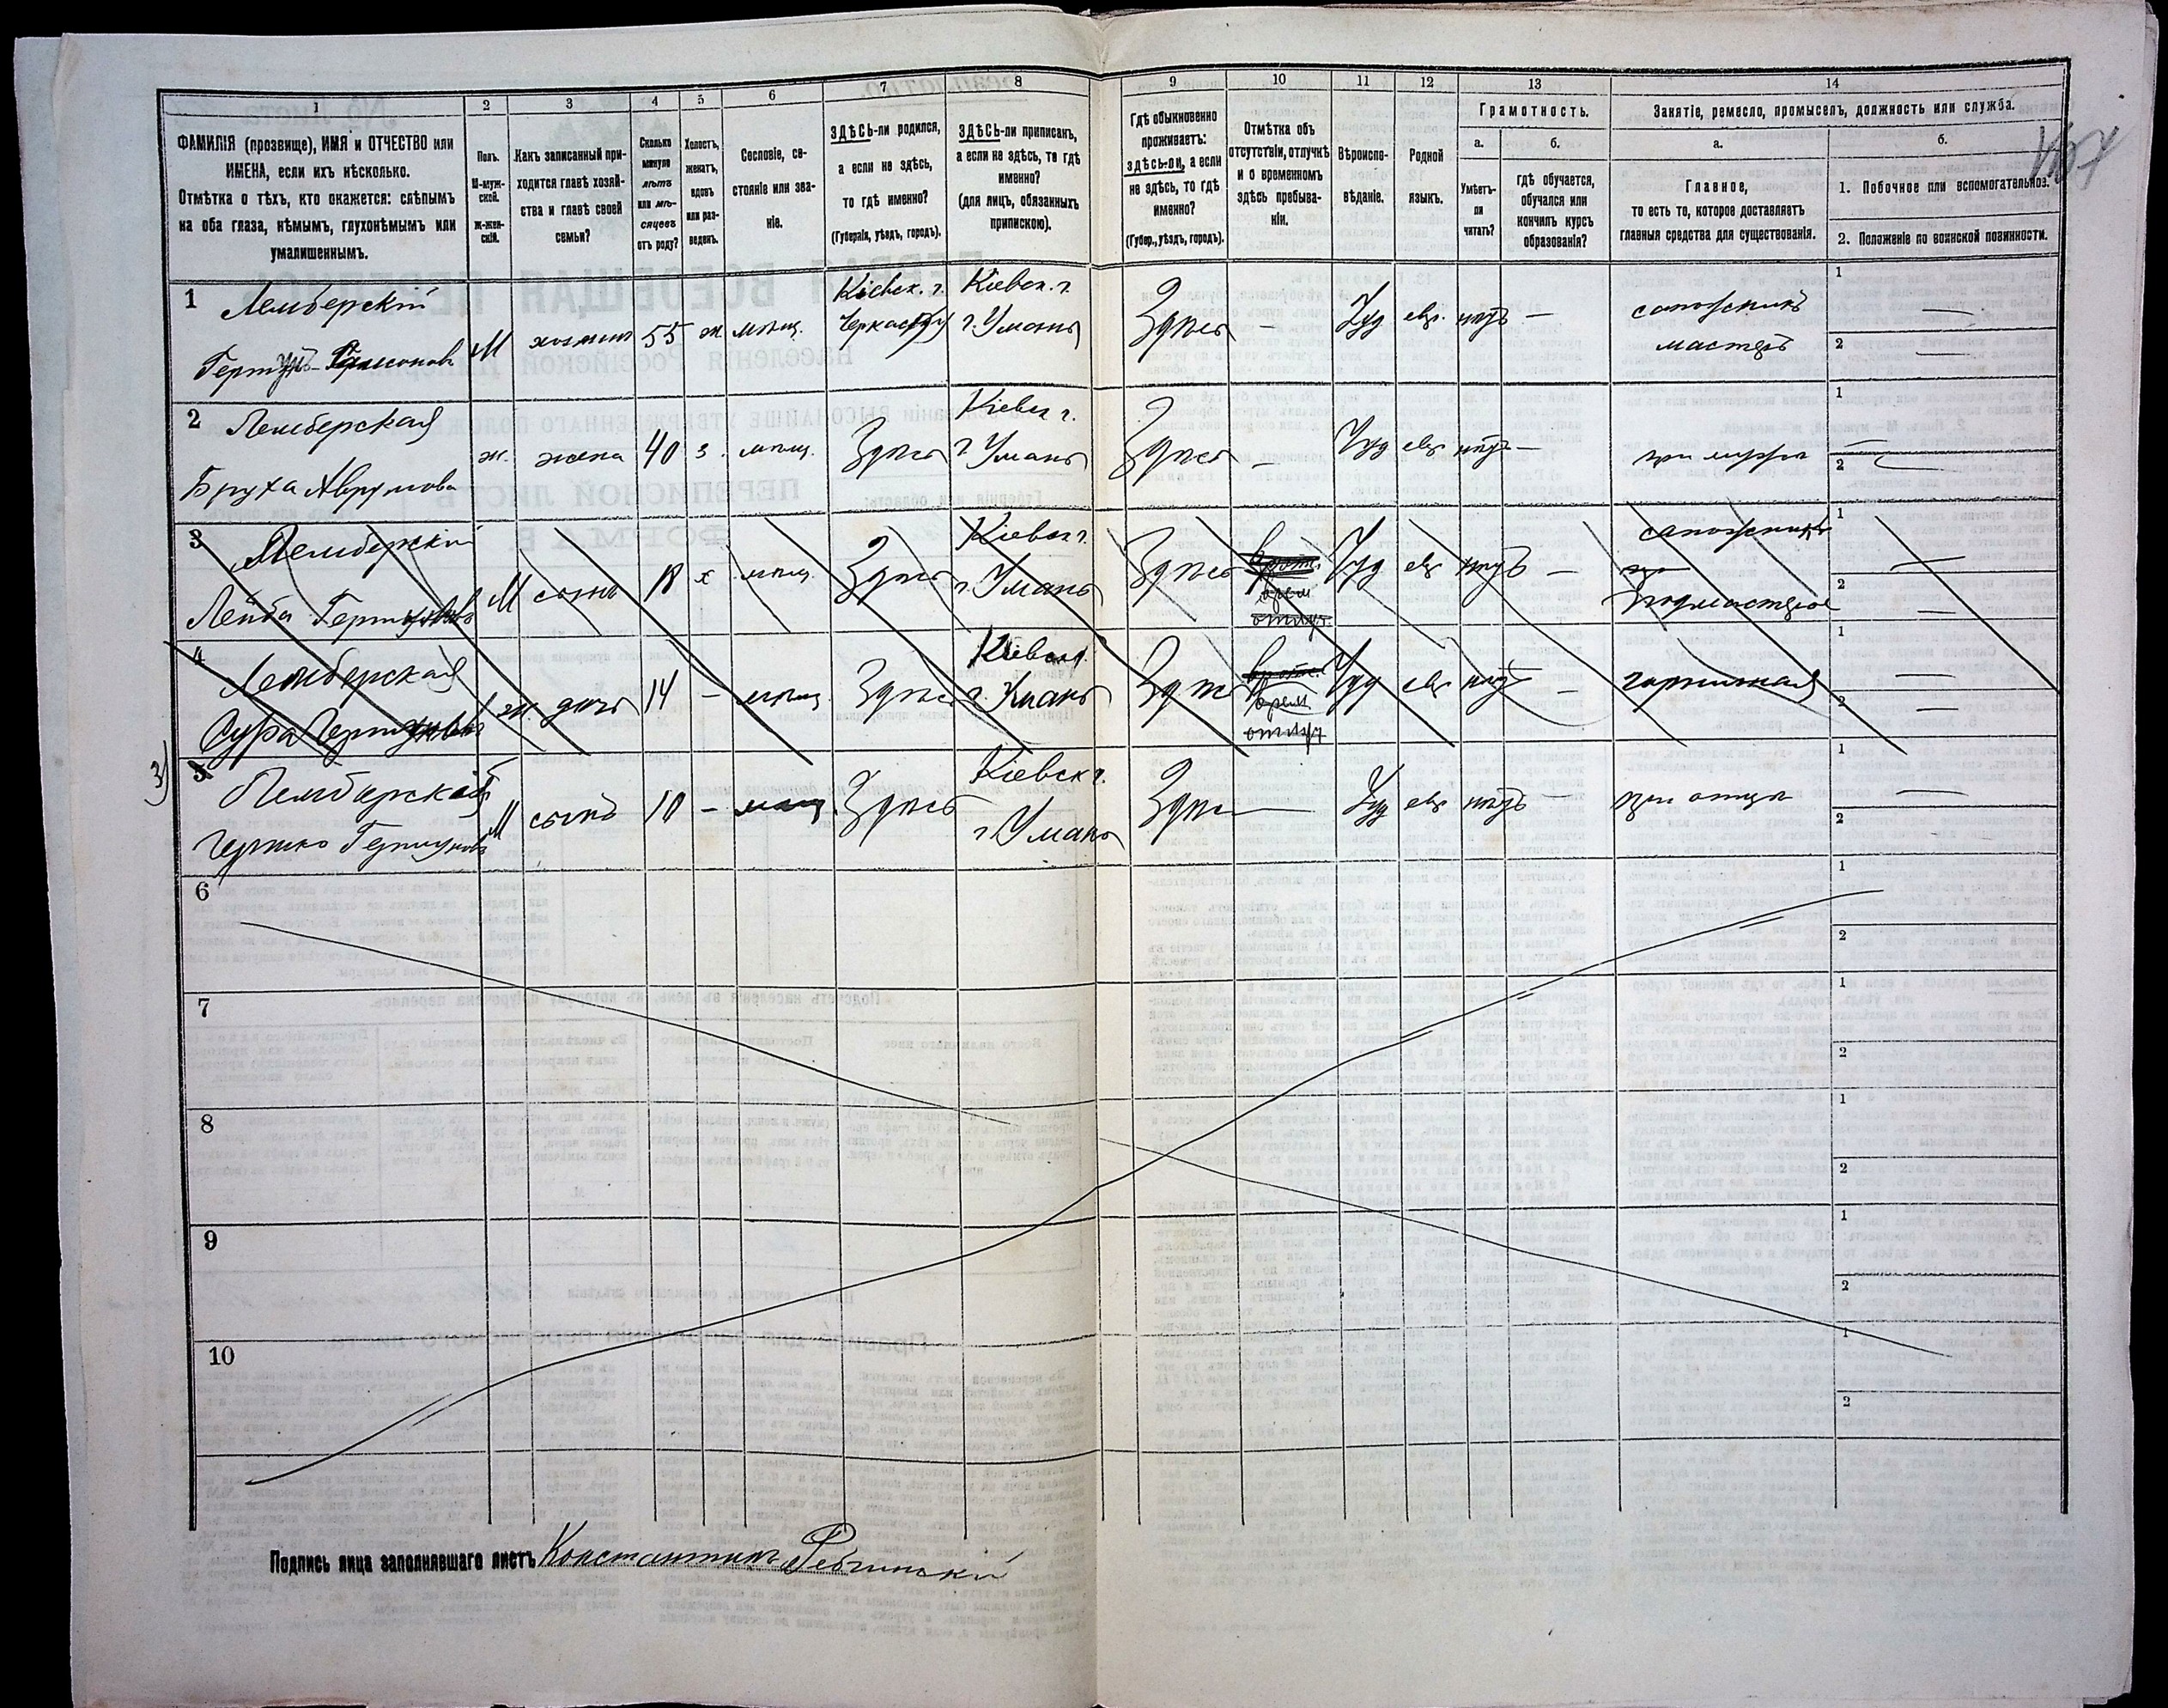 1 2 3 4 5 6 7 8 9 10 11 12 13 14
ФАМИЛІЯ (прозвище), ИМЯ и ОТЧЕСТВО или
ИМЕНА, если ихъ нѣсколько.
Отмѣтка о тѣхъ, кто окажется: слѣпымъ
на оба глаза, нѣмымъ, глухонѣмымъ или
умалишеннымъ.
Полъ.
М-муж-
ской.
Ж-жен-
скій.
Какъ записанный при-
ходится главѣ хозяй-
ства и главѣ своей
семьи?
Сколько
минуло
лѣтъ
или мѣ-
сяцевъ
отъ роду?
Холостъ,
женатъ,
вдовъ
или раз-
веденъ.
Сословіе, со-
стояніе или зва-
ніе.
ЗДѢСЬ-ли родился,
а если не здѣсь,
то гдѣ именно?
(Губернія, уѣздъ, городъ).
ЗДѢСЬ-ли приписанъ,
а если не здѣсь, то гдѣ
именно?
(для лицъ, обязанныхъ
припискою).
Гдѣ обыкновенно
проживаетъ:
здѣсь-ли, а если
не здѣсь, то гдѣ
именно?
(Губер., уѣздъ, городъ).
Отмѣтка объ
отсутствіи, отлучкѣ
и о временномъ
здѣсь пребыва-
ніи.
Вѣроиспо-
вѣданіе.
Родной
языкъ.
Грамотность.
а.
Умѣетъ-
ли
читать?
б.
гдѣ обучается,
обучался или
кончилъ курсъ
образованія?
Занятіе, ремесло, промыселъ, должность или служба.
а.
Главное,
то есть то, которое доставляетъ
главныя средства для существованія.
б.
1. Побочное или вспомогательное.
2. Положеніе по воинской повинности.
1 Лемберскій Кіевск. г. Кіевск. г.
М хозяинъ 55 ж мѣщ. г. Умань Здѣсь — Іуд евр. нѣтъ — сапожникъ
мастеръ
2 Лемберская Кіевск г.
Бруха Аврумова ж. жена 40 з. мѣщ. Здѣсь г. Умань Здѣсь — Іуд евр нѣтъ — при мужѣ
3 Лемберскій Кіевск г. сапожникъ
Лейба М сынъ 18 х мѣщ. Здѣсь г. Умань Здѣсь Іуд евр нѣтъ —
врем
отлуч.
подмастерье
4 Лемберская
Сура ж. дочь 14 — мѣщ. Здѣсь г. Умань Здѣсь Іуд евр нѣтъ — горничная
врем
отлуч
3)
5 Лемберскій Кіевск г.
М сынъ 10 — мѣщ. Здѣсь г. Умань Здѣсь — Іуд евр нѣтъ — при отцѣ
6
7
8
9
10
Подпись лица заполнявшаго листъ Константинъ